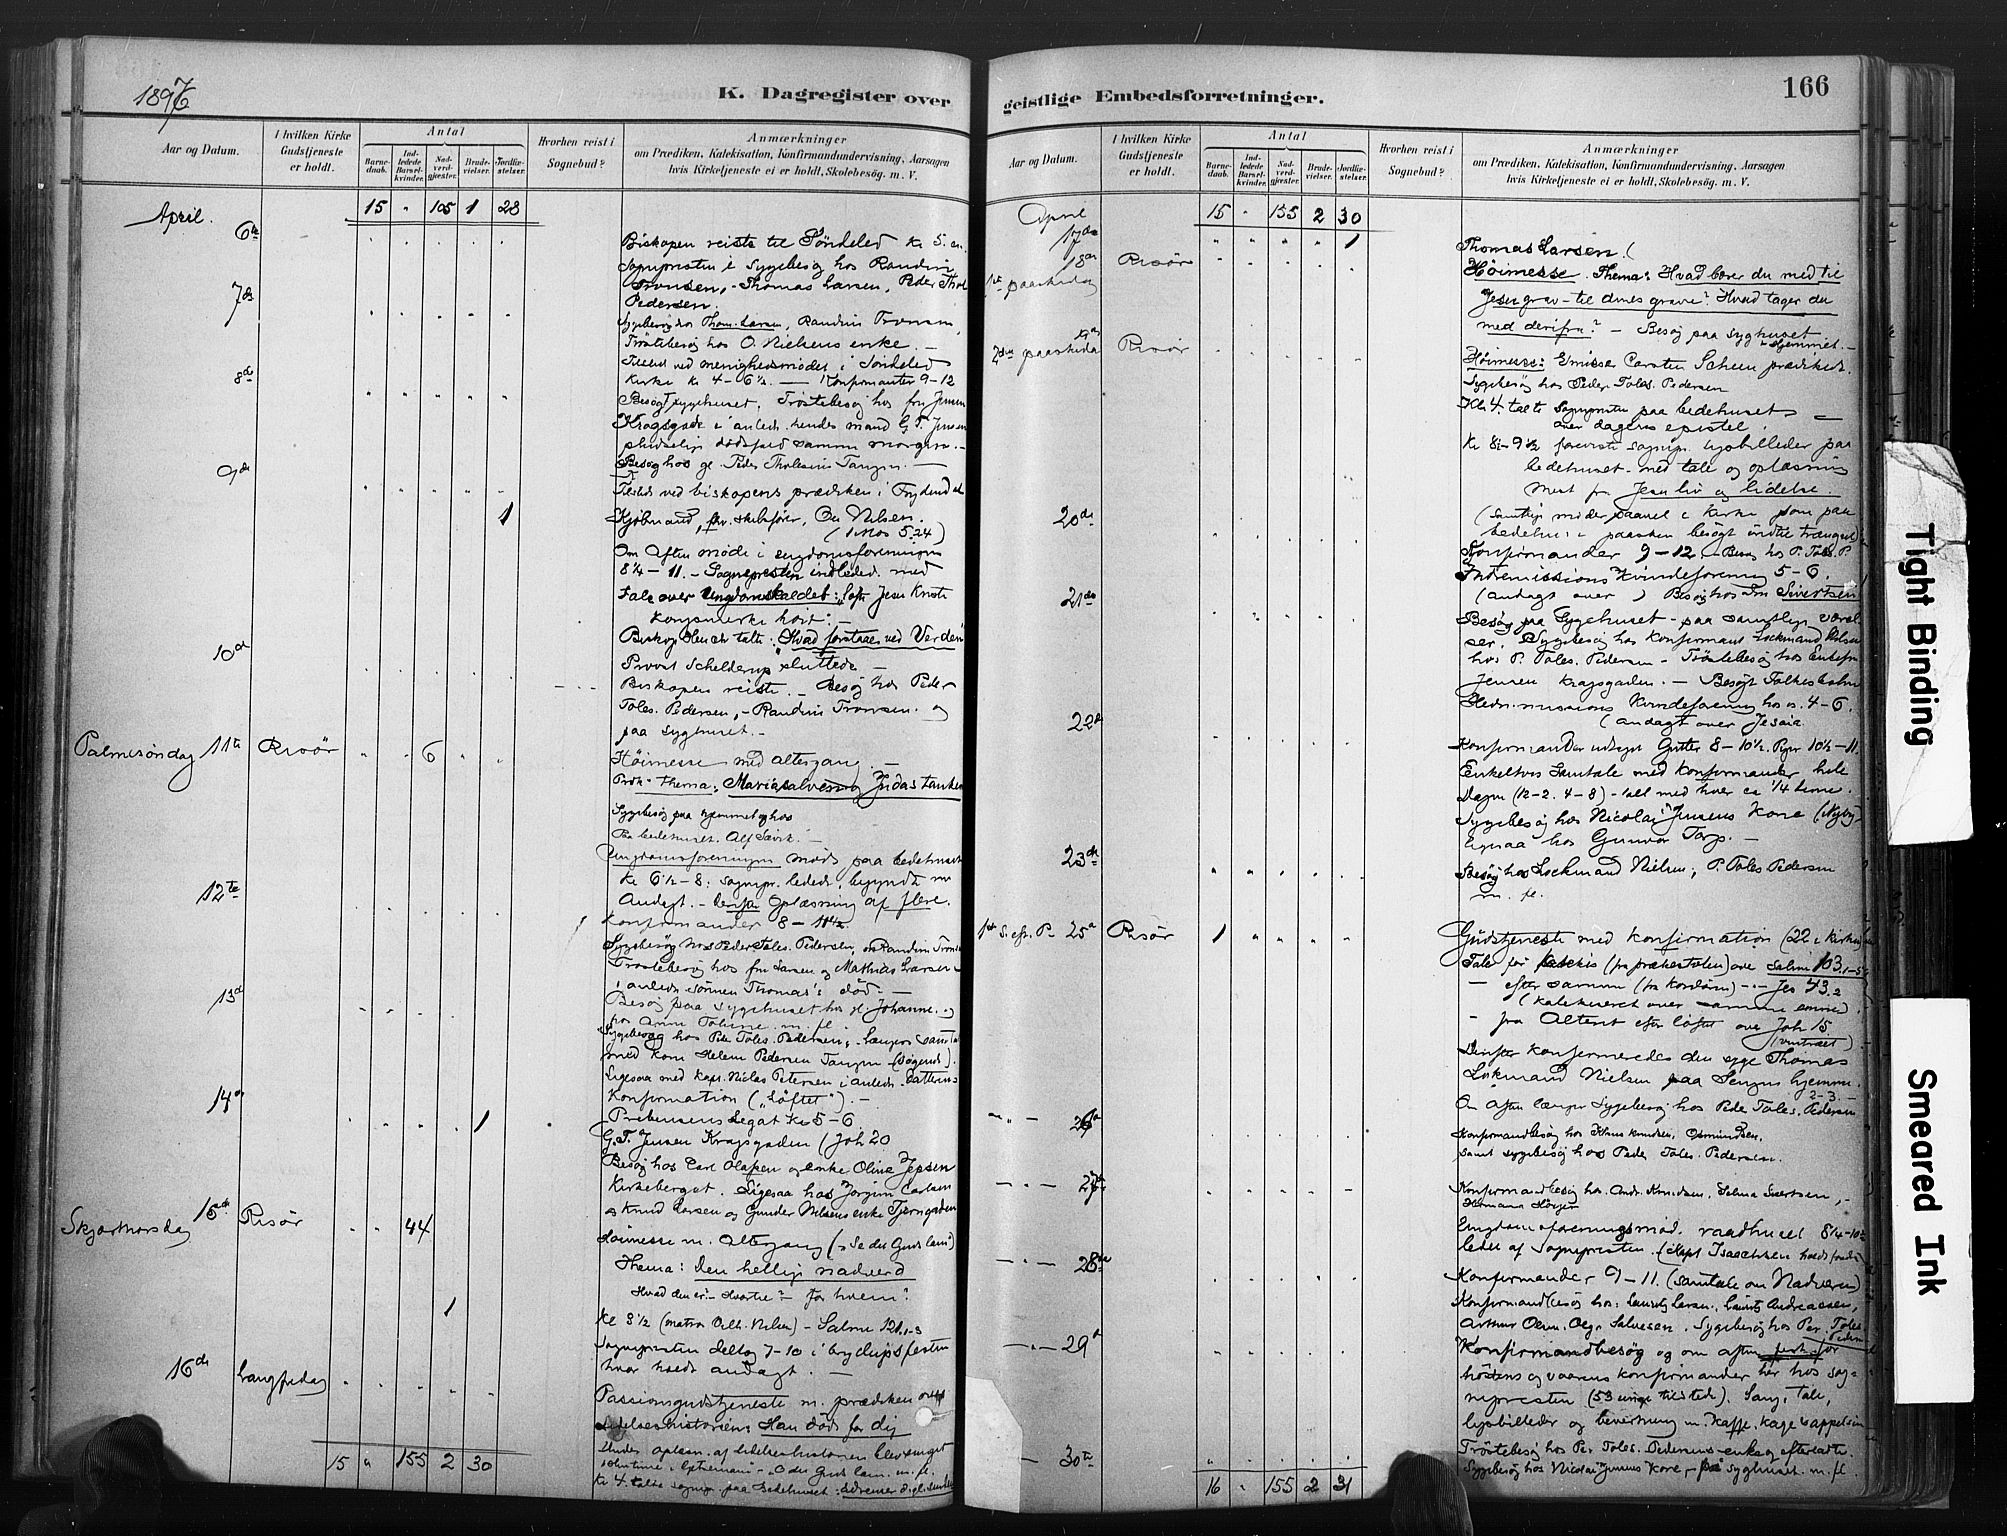 1897
K. Dagregister over
geistlige Embedsforretninger.
166
Aar og Datum.
I hvilken Kirke Gudstjeneste er holdt.
Antal
Barnedaab.
Indledede Barselkvinder.
Nadverdgjæster.
Brudevielser.
Jordfæstelser.
Hvorhen reist i Sognebud?
Anmærkninger
om Prædiken, Katekisation, Konfirmandundervisning, Aarsagen
hvis Kirketjeneste ei er holdt, Skolebesøg. m. V.
April. 15 " 105 1 28
6te Biskopen reiste til Søndeled
Sognepresten i Sygebesøg hos Randine
Tronsen, - Thomas Larsen, Peder
Pedersen.
7de Sygebesøg hos Thom. Larsen, Randine Tronsen,
Trøstebesøg hos O. Nielsens enke. -
Tilsted ved menighedsmødet i Søndeled
8de Kirke Kl 4 - 6½. - Konfirmanter 9-12
Besøgt sygehuset. Trøstebesøg hos fru Jensen
Kragsgade i anledn. hendes mand G. T. Jensen
pludselig dødsfald samme morgen. -
9de Besøg hos gl. Peder
Tilsted ved biskopens prædiken i
1 Kjøbmand, fhv. skibsfører, Ole Nilsen.
(1 Mos 5.24)
Om Aften møde i ungdomsforeningen
8¼ - 11. - Sognepresten indledet med
Tale over Ungdomskaldet: Løft Jesu Kristi
Kongsmerke høit. -
Biskop Heuch talte: Hvad forstaaes ved Verden
10de Provst Schelderup sluttede -
Biskopen reiste. - Besøg hos Peder
Toles. Pedersen, - Randine Tronsen. og
paa Syghuset. -
Palmesøndag 11te Risør " " 6 " "
Høimesse med altergang. -
Præk. Thema: Maria salvesen og Judas tanker
Sygebesøg paa hjemmet og hos
Paa bedehuset.
Ungdomsforeningen møde paa bedehuset
Kl 6½-8: sognepr. ledede, begyndte m
12te Andagt. - derefter Oplæsning af flere.
Konfirmander 8 - 11½
Sygebesøg hos Peder Toles. Pedersen, og Randine
Trøstebesøg hos fru Larsen og Mathias Larsen
i anledn. sønnen Thomas's død. -
13de Besøg paa Sygehuset hos gl. Johanne. og
m. fl.
Sygebesøg hos Peder Toles. Pedersen, - Længere samtale
med kone Helene Pedersen Tangen (Søgend).
Ligesaa med Kapt. Niclas Petersen i anledn. Datterens
14de Konfirmation („Løftet"). -
Prebensens Legat Kl 5-6
1 G. T. Jensen Kragsgaden (Joh 20
Besøg hos Carl Olafsen og enke Oline Jepsen
Kirkeberget. Ligesaa hos Jørgine Carlsen
Knud Larsen og Gunder Nilsens enke Tjerngaden
Skjærtorsdag 15de Risør " " 44
Høimesse m. Altergang („Se det Guds lam")
Thema: Den hellige nadverd
Hvad den er? - Hvortil? - for hvem?
1 Kl 8½ (matros Vilh. Nilsen) - Salme 121.1-3
Sognepresten deltog 7-10 i bryllupsfesten
hvor holdt andagt. -
16de Langfredag
Passionsgudstjeneste m. prædiken over
Lidelseshistorien: Han døde for dig
Under oplæsn. af lidelseshistorien blev sunget
Kl 4. talte sognepr. paa Bedehuset:
15 " 155 2 30
April 15 " 155 2 30
17de " " " " 1 Thomas Larsen (
18de Risør
1ste paaskedag
Høimesse. Thema: Hvad bærer du med til
Jesu grav - til dines grave? Hvad tager du
med derifra? - Besøg paa syghuset
hjemmet. -
19de
2den paaskedag Risør
Høimesse: Emissær Carsten Scheen prædikede.
Sygebesøg hos Peder Toles. Pedersen
Kl. 4. talte Sognepresten paa bedehuset -
over dagens epistel.
Kl 8 - 9½ foreviste sognepr. Lysbilleder paa
bedehuset - med tale og oplæsning
mest fra Jesu liv og lidelse.
20de (Samtlige møder saavel i kirke som paa
bedehus i paasken besøgt indtil trængsel)
Konfirmander 9-12. - Besøg hos P. Toles. P.
Indremissions Kvindeforening 5-6.
21de (andagt over ) Besøg hos Sivertsen
Besøg paa Sygehuset - paa samtlige værel-
ser. Sygebesøg hos Konfirmant Lockmand Nilsen
hos P. Toles. Pedersen - Trøstebesøg hos Enkefru
Jensen Kragsgaden. - Besøgt Folkeskolen
22de Hedn.missions Kvindeforening hos os. 4-6.
(andagt over Jesaia
Konfirmander udspt. Gutter 8-10½. Piger 10½-11.
Enkeltvis Samtale med Konfirmander hele
Dagen (12-2. 4-8) - talt med hver ca ¼ time.
Sygebesøg hos Nicolai Jensens Kone (
ligesaa hos Gunvor Torp. -
23de Besøg hos Lockmand Nielsen, P. Toles Pedersen
m. fl.
1ste S. eft. P. 25de Risør 1 " " " "
Gudstjeneste med Konfirmation (22 i Kirken
Tale før katekis (fra prækestolen) over Salme 103.1-5
- efter samme (fra kordøren) - Jes 43.2
(katekiseret over samme emne)
- fra Alteret efter løftet over Joh 15
(vintræet)
Derefter konfirmeredes den syge Thomas
Lokmand Nielsen paa Sengen hjemme.
2-3. -
26de Om Aften længere Sygebesøg hos Peder Toles. Pedersen
Konfirmandbesøg hos Klaus Knudsen, Osmundsen.
samt sygebesøg hos Peder Toles. Pedersen.
27de Konfirmandbesøg hos. Andr. Knudsen, Selma Sivertsen, -
Hermana
Ungdomsforeningsmøde, raadhuset 8¼-10½
ledet af Sognepresten. (Kapt. Isaachsen holdt foredr
28de Konfirmander 9-11. (samtale om Nadveren)
Konfirmandbesøg hos: Lauritz Larsen, Lauritz Andreassen,
Arthur Olsen. Olg. Salvesen. Sygebesøg hos Per. Toles
Pedersen
29de Konfirmandbesøg og om aften for
høstens og vaarens konfirmander her hos sog-
nepresten (53 unge tilstede). Sang, tale,
lysbilleder og bevertning m. kaffe, kage & appelsin
30te Trøstebesøg hos Per Toles. Pedersens enke og efterladte.
Sygebesøg hos Nicolai Jensens Kone, - paa syghuset. m. fl.
16 " 155 2 31
Tight Binding
Smeared Ink